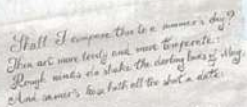 Shall I compare thee to a summer's day?
Thou art more lovely and more temperate:
Rough winds do shake the darling buds of May,
And summer's lease hath all too short a date: